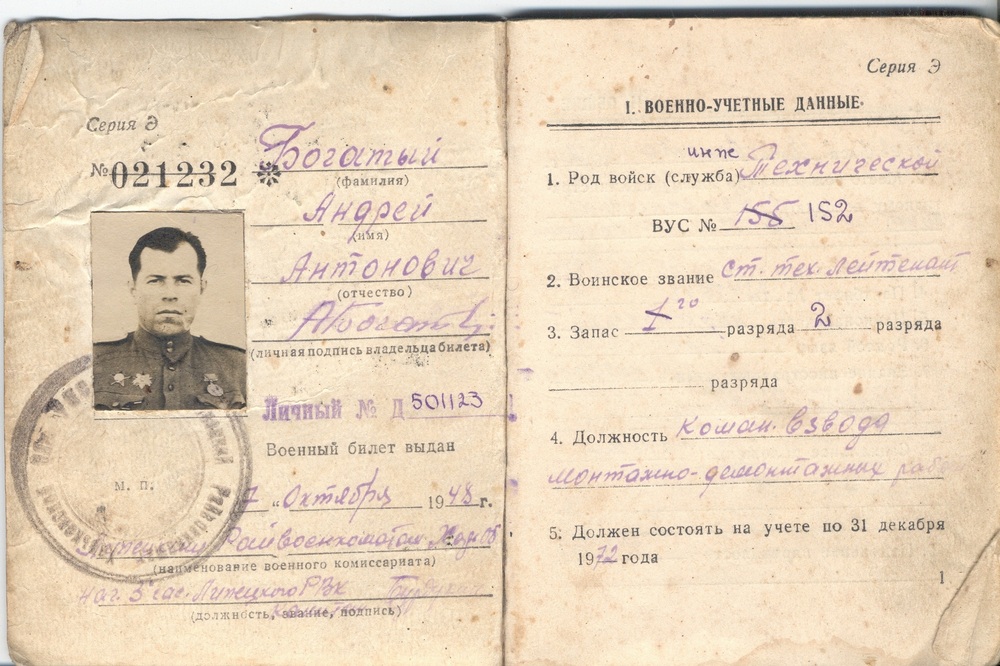 Серия Э
№ 021232 *
Богатый
(фамилия)
Андрей
(имя)
Антонович
(отчество)
(личная подпись владельца билета)
Личный № Д 501123
Военный билет выдан
М. П.
7 " Октября 1948 г.
Райвоенкоматом
(наименование военного комиссариата)
нач. 3 РВК
(должность, звание, подпись)
Серия Э
I. ВОЕННО-УЧЕТНЫЕ ДАННЫЕ
инж
1. Род войск (служба) Технической
ВУС № 155 152
2. Воинское звание Ст. тех. лейтенант
3. Запас 1го разряда 2 разряда
разряда
4. Должность Коман. взвода
монтажно-демонтажных раб
5. Должен состоять на учете по 31 декабря
1972 года
1